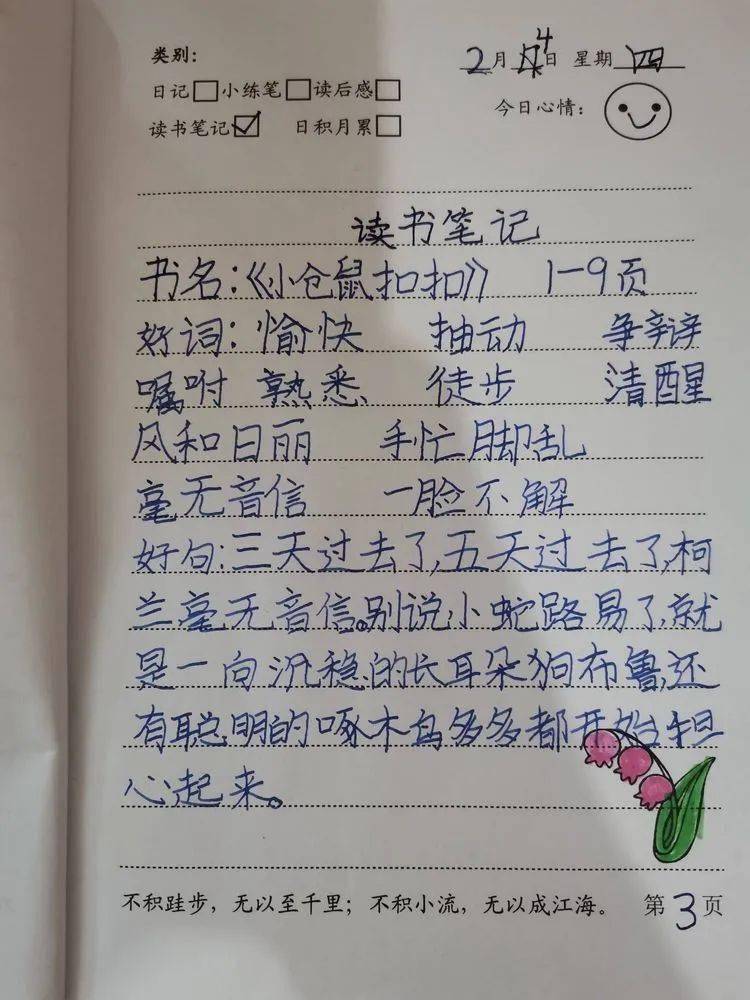 类别：
2月4日 星期四
日记□小练笔□读后感□
今日心情：
读书笔记☑ 日积月累□
读书笔记
书名：《小仓鼠扣扣》 1-9页
好词：愉快 抽动 争辩
嘱咐 熟悉 徒步 清醒
风和日丽 手忙脚乱
毫无音信 一脸不解
好句：三天过去了，五天过去了，柯
兰毫无音信。别说小蛇路易了，就
是一向沉稳的长耳朵狗布鲁，还
有聪明的啄木鸟多多都开始担
心起来。
不积跬步，无以至千里；不积小流，无以成江海。 第3页